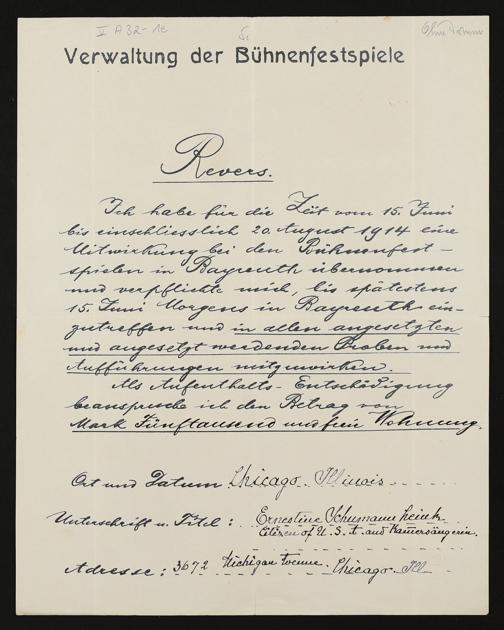 II A 32-1e
Ohne Datum
Verwaltung der Bühnenfestspiele
Revers.
Ich habe für die Zeit vom 15. Juni
bis einschliesslich 20. August 1914 eine
Mitwirkung bei den Bühnenfest-
spielen in Bayreuth übernommen
und verpflichte mich, bis spätestens
15. Juni Morgens in Bayreuth ein-
zutreffen und in allen angesetzten
und angesetzt werdenden Proben und
Aufführungen mitzuwirken.
Als Aufenthalts-Entschädigung
beanspruche ich den Betrag von
Mark Fünftausend und freie Wohnung.
Ort und Datum Chicago Illinois
Unterschrift u. Titel: Ernestine Schumann Heink
Citizen of U. S. A. and Kamersängerin.
Adresse: 3672 Michigan Avenue. Chicago. Ill